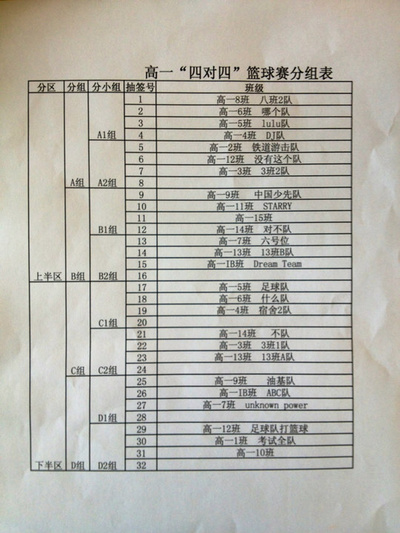 高一“四对四”篮球赛分组表
分区 分组 分小组 抽签号 班级
1 高一8班 八班2队
2 高一6班 哪个队
3 高一5班 lulu队
A1组 4 高一4班 DJ队
5 高一2班 铁道游击队
6 高一12班 没有这个队
7 高一3班 3班2队
A组 A2组 8
9 高一9班 中国少先队
10 高一11班 STARRY
11 高一15班
B1组 12 高一14班 对不队
13 高一7班 六号位
14 高一13班 13班B队
15 高一IB班 Dream Team
上半区 B组 B2组 16
17 高一5班 足球队
18 高一6班 什么队
19 高一4班 宿舍2队
C1组 20
21 高一14班 不队
22 高一3班 3班1队
23 高一13班 13班A队
C组 C2组 24
25 高一9班 油基队
26 高一IB班 ABC队
27 高一7班 unknown power
D1组 28
29 高一12班 足球队打篮球
30 高一1班 考试全队
31 高一10班
下半区 D组 D2组 32